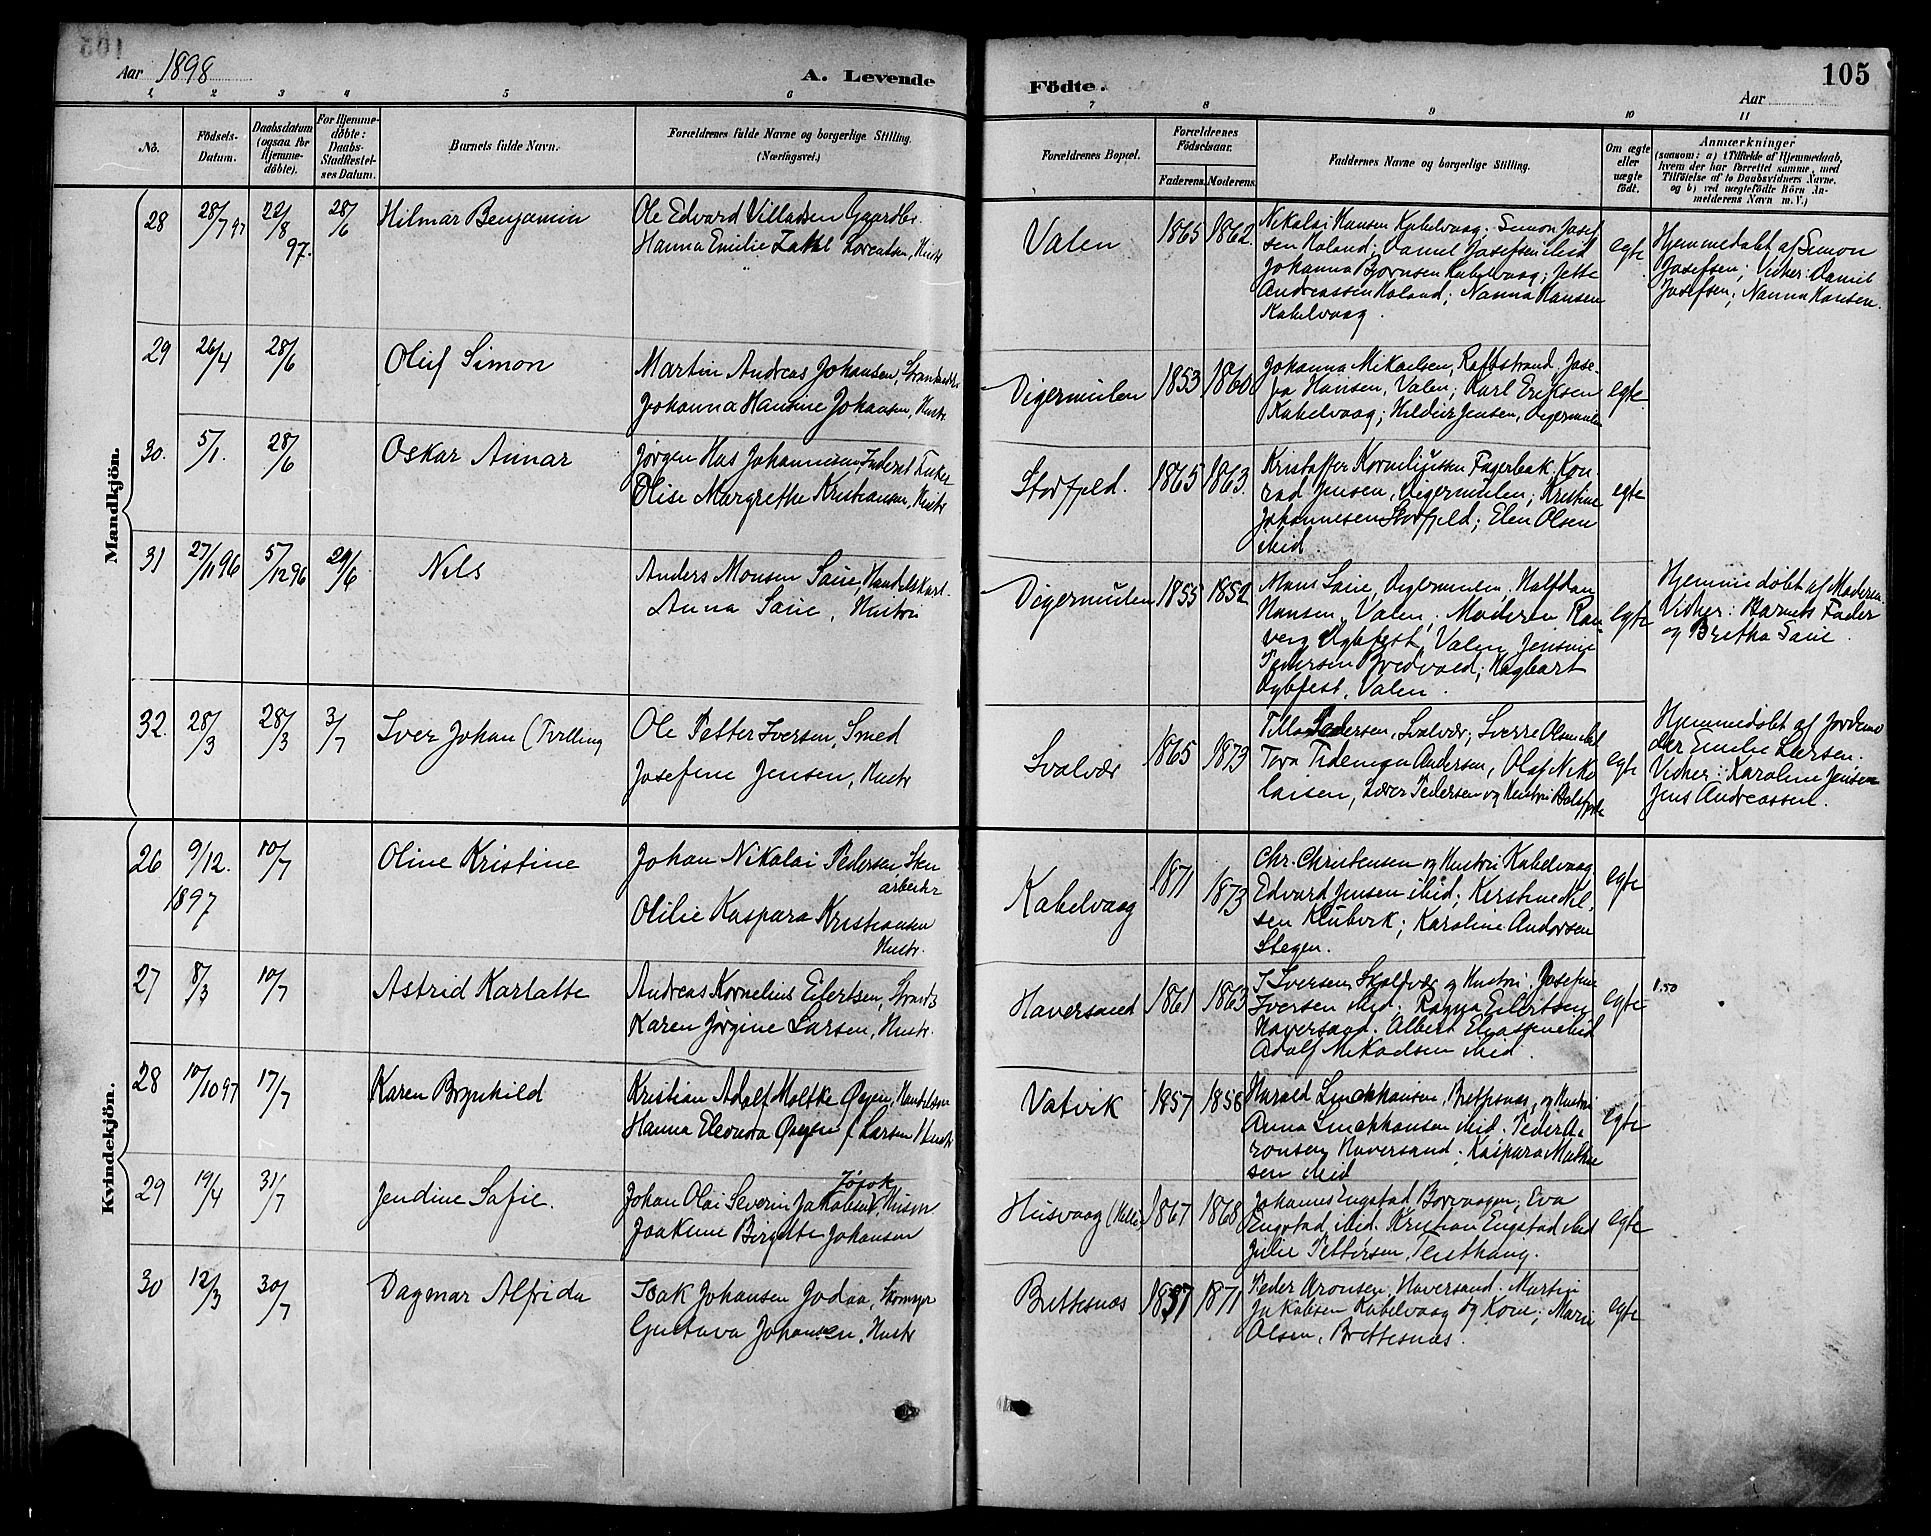 105
Aar 1898
A. Levende
Födte.
Aar
1 2 3 4 5 6 7 8 9 10 11
No.
Födsels-Datum.
Daabsdatum (ogsaa for Hjemme-döbte).
For Hjemme-döbte: Daabs-Stadfestel-ses Datum.
Barnets fulde Navn.
Forældrenes fulde Navne og borgerlige Stilling. (Næringsvei.)
Forældrenes Bopæl.
Forældrenes Födselsaar.
Faderens. Moderens.
Faddernes Navne og borgerlige Stilling.
Om ægte eller uægte födt.
Anmærkninger
(saasom: a) i Tilfælde af Hjemmedaab,
hvem der har forrettet samme, med
Tilföielse af to Daabsvidners Navne,
og b) ved uægtefödte Börn An-
melderens Navn m. V.)
Mandkjön.
28 28/7 97 22/8 97. 28/6 Hilmar Benjamin
Ole Edvard Villadsen Gaardbr.
Hanna Emilie Lorentsen, Hustr
Valen 1865 1862.
Nikolai Hansen Kabelvaag; Simon Josef
sen Holand; Daniel Josefsen ibid
Johanna Bjornsen Kabelvaag; Jette
Andreassen Holand; Nanna Hansen
Kabelvaag.
egte
Hjemmedøbt af Simon
Josefsen; Vidner: Daniel
Josefsen; Nanna Hansen.
29 26/4 28/6 Oluf Simon
Martin Andreas Johansen,
Johanna Hansine Johansen, Hustr
Digermulen 1853 1860
Johanna Mikaelsen, Raftstrand, Jose-
fa Hansen, Valen; Karl Eriksen
Kabelvaag; Jensen, Digermulen
egte
30. 5/1. 28/6 Oskar Ainar
Jørgen Johannesen Fisker
Olise Margrethe Kristiansen, Hustr
Storfjeld. 1865 1863.
Kristoffer Korneliussen Fagerbak. Kon-
rad Jensen, Digermulen; Kristine
Johannesen Storfjeld; Elen Olsen
ibid.
egte
31 27/11 96 5/12 96 29/6 Nils
Anders Monsen Saue, Handelskarl.
Anna Saue, Hustru
Digermulen 1855 1852
Mons Saue, Digermulen, Halfdan
Hansen, Valen; Moderen Ran-
veig Valen, Jensine
Pedersen Bredvold; Hagbart
Valen.
egte
Hjemmedøbt af Moderen.
Vidner: Barnets Fader
og Bretha Saue.
32. 28/3 28/3 3/7 Iver Johan (Tvilling
Ole Petter Iversen, Smed
Josefine Jensen, Hustr
Svolvær 1865 1873
Pedersen, Svolvær; Sverre Olsen ibid
Tora Tidemann Andersen, Olaf Niko
laisen, Pedersen og Hustru
egte
Hjemmedøbt af Jordemo
der Emilie Larsen.
Vidner: Karoline Jensen
Jens Andreassen.
Kvindekjön.
26 9/12. 1897 10/7 Oline Kristine
Johan Nikolai Pedersen Sten
arbeider
Otilie Kaspara Kristiansen
Hustr.
Kabelvaag 1871 1873
Chr. Christensen og Hustru Kabelvaag
Edvard Jensen ibid; Kerstine Nil-
sen Klubvik; Karoline Andorsen
Stegen.
egte
27 8/3 10/7 Astrid Karlatte
Andreas Kornelius Eilertsen,
Karen Jørgine Larsen, Hustr.
Haversand 1861 1863
I Iversen, Skolvær og Hustru; Josefine
Iversen ibid; Ragna Eilertsen
Haversand. Albert ibid
Adolf Mikalsen ibid.
egte
1.50
28 10/10 97 17/7 Karen Brynhild
Kristian Adolf Moltke Øyen, Handelsm
Hanna Eleonora Øyen f. Larsen Hustr
Vatvik 1857 1858
Harald Linckhausen, Brettesnæs, og Hustru
Anna Linckhausen ibid. Peder A-
ronsen Haversand; Kaspara Mathie
sen ibid
egte
29 19/4 31/7 Jendine Safie.
Johan Olai Severin Jakobsen, Husm
Joakime Birgitte Johansen
Husvaag 1867 1868
Johannes Engstad, Borvaagen, Eva
Engstad ibid. Kristian Engstad ibid
Julie Pettersen,
egte
30 12/3 30/7 Dagmar Alfrida
Isak Johansen Jodaa,
Gustava Johansen, Hustr
Brettesnæs 1837 1871
Peder Aronsen, Haversand. Martin
Jakobsen Kabelvaag og Kone; Marie
Olsen, Brettesnæs.
egte